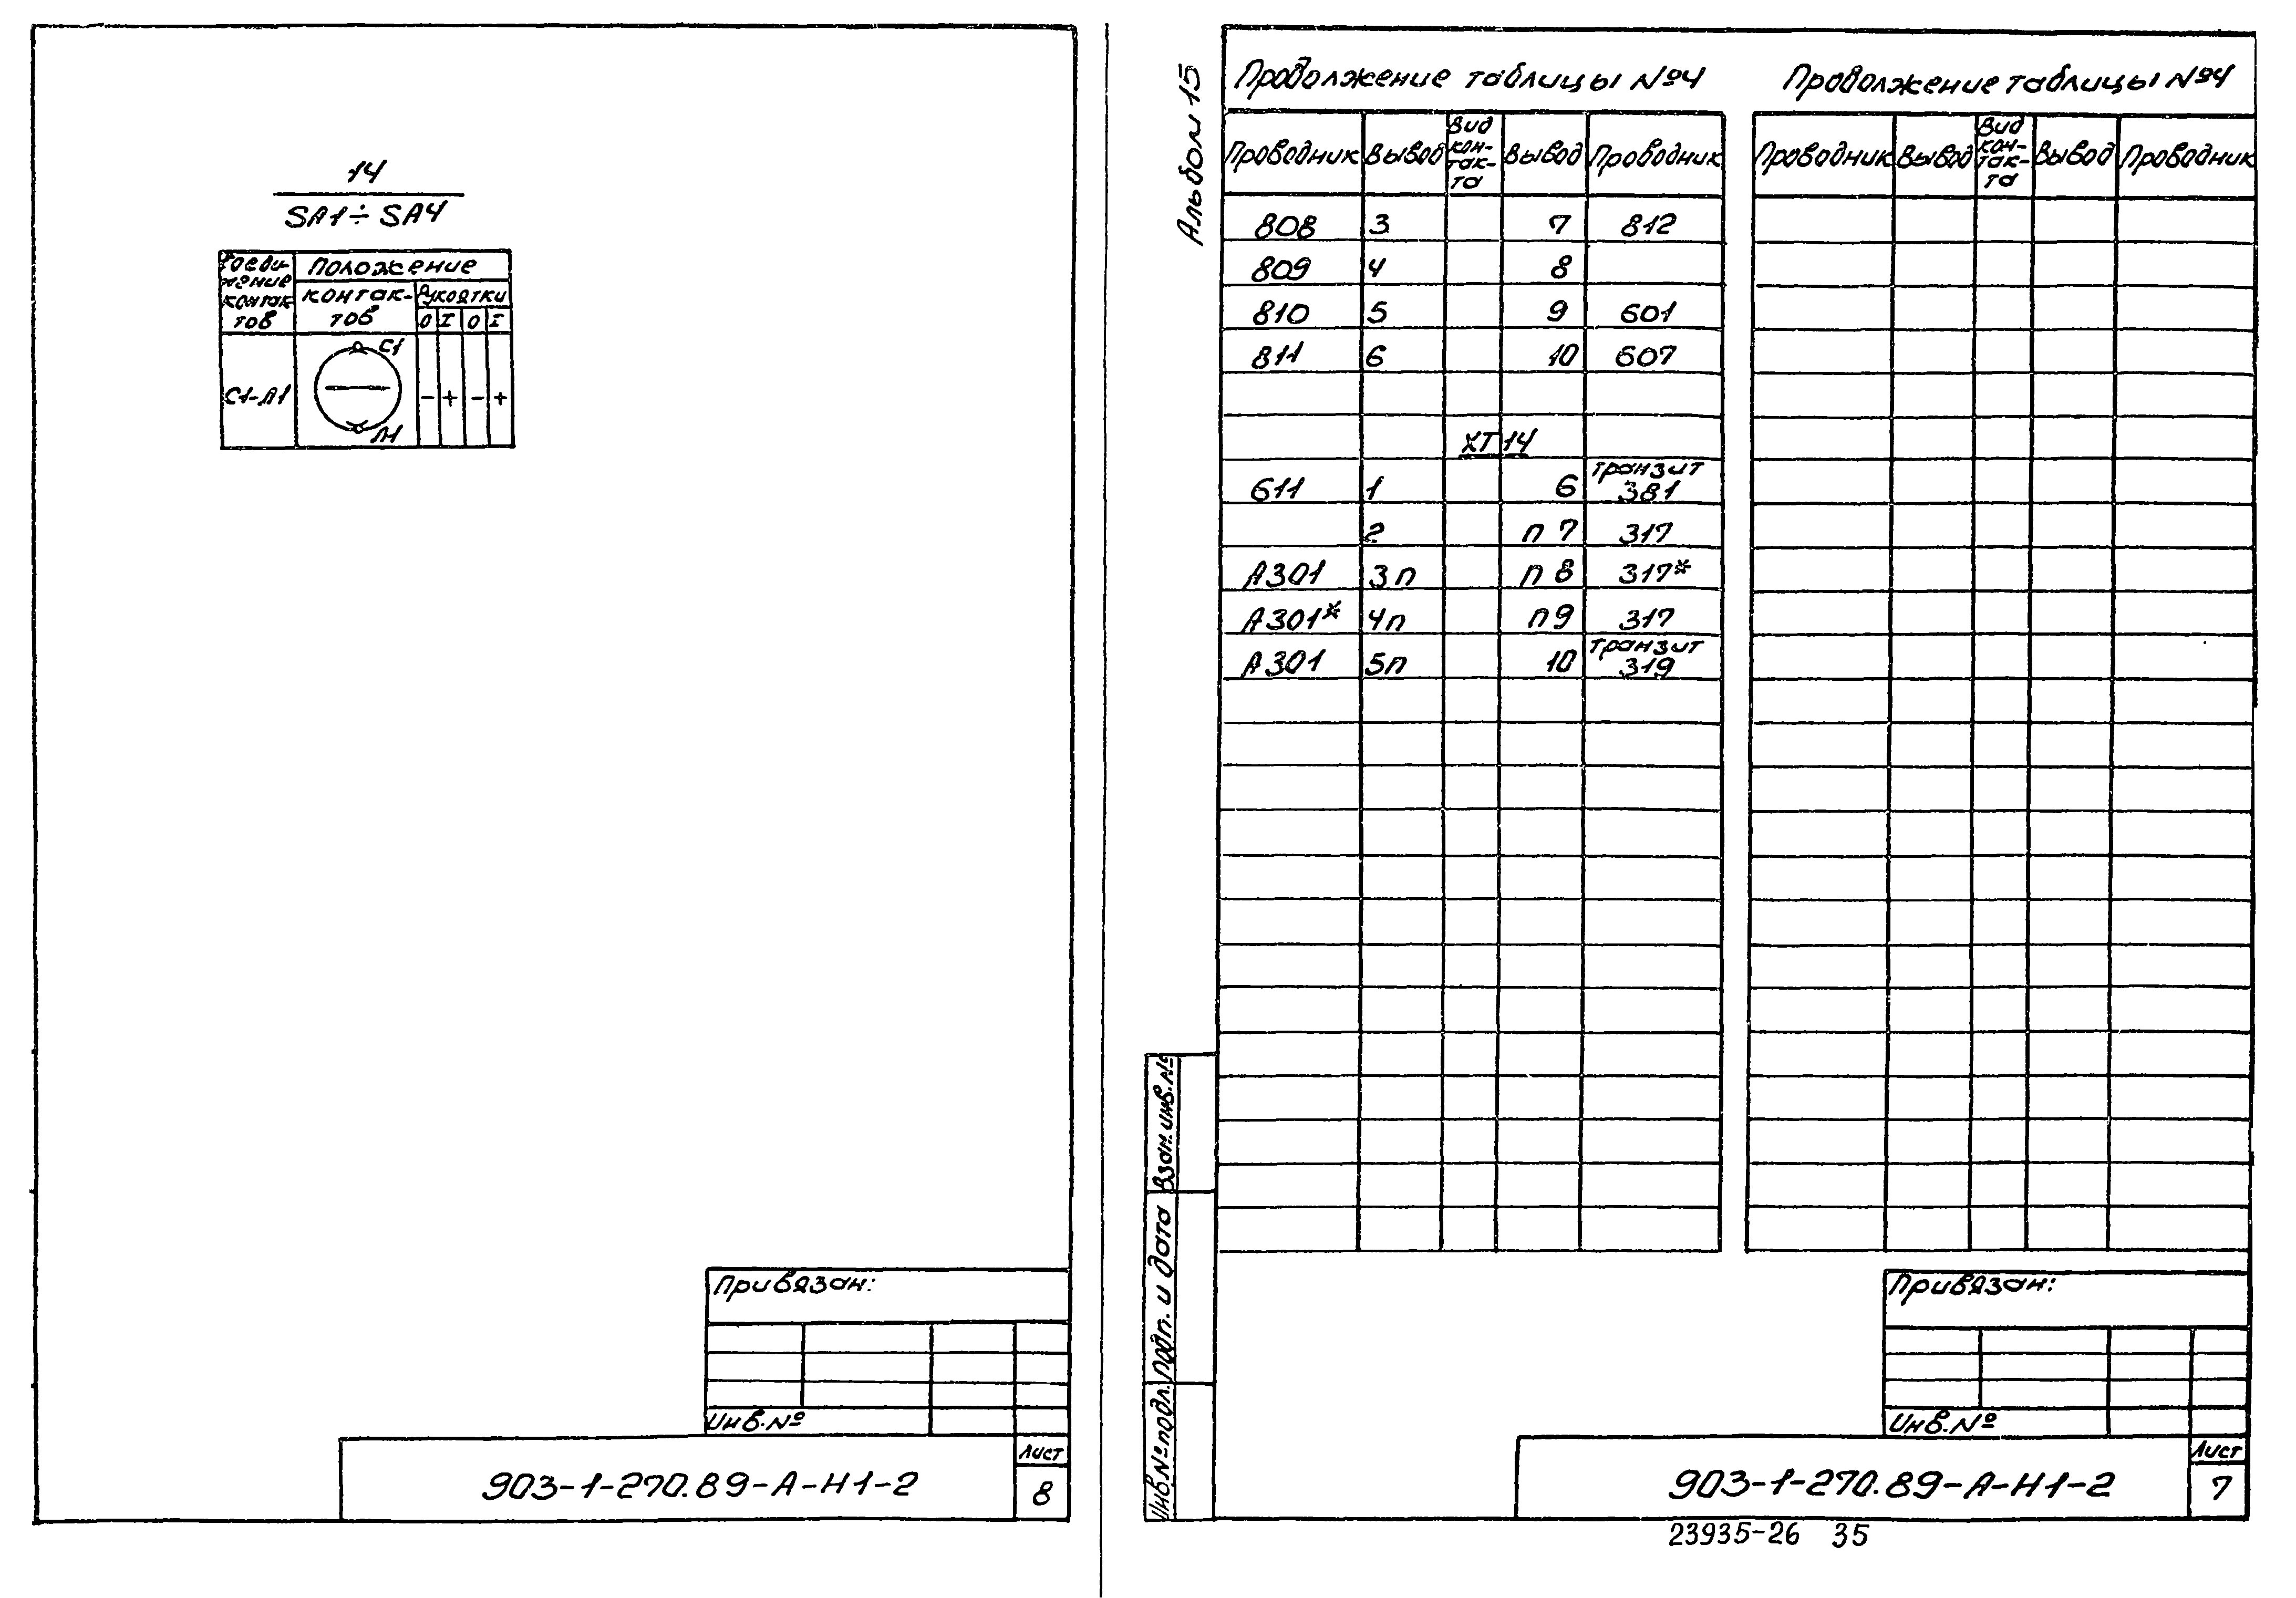 14
SA1÷SA4
Соеди- Положение
нение контак- Рукоятки
контак тов О I О I
тов
С1-Л1 С1 Л1 - + - +
Привязан:
Инв.№
903-1-270.89-А-Н1-2 Лист 8
Альбом 15
Продолжение таблицы №4
Проводник Вывод Вид кон-так-та Вывод Проводник
808 3 7 812
809 4 8
810 5 9 601
811 6 10 607
XT 14
611 1 6 транзит 381
2 п 7 317
А301 3п п 8 317*
А301* 4п п9 317
А301 5п 10 транзит 319
Продолжение таблицы №4
Проводник Вывод Вид кон-так-та Вывод Проводник
Взам.инв.№
Подп. и дата
Инв.№ подл.
Привязан:
Инв.№
903-1-270.89-А-Н1-2 Лист 7
23935-26 35